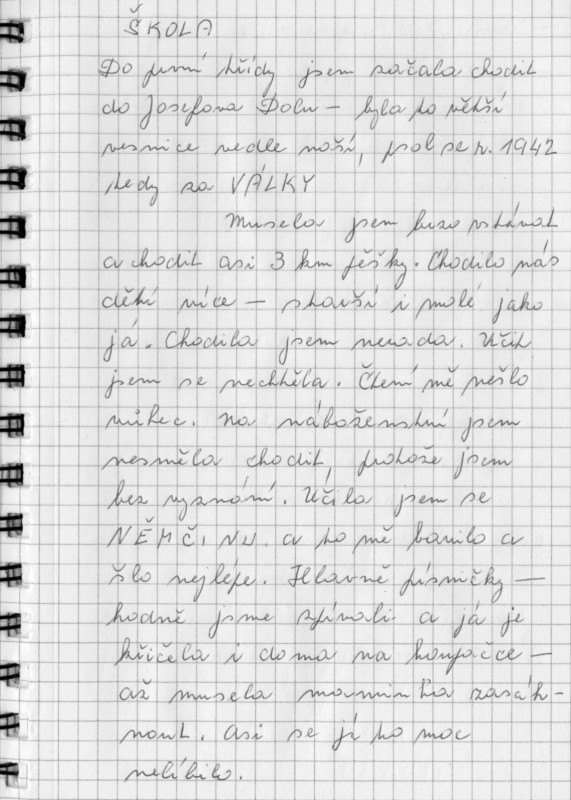 ŠKOLA
Do první třídy jsem začala chodit
do Josefova Dolu – byla to větší
vesnice vedle naší, psal se r. 1942
tedy za VÁLKY
Musela jsem brzo vstávat
a chodit asi 3 km pěšky. Chodilo nás
dětí více – starší i malé jako
já. Chodila jsem nerada. Učit
jsem se nechtěla. Čtení mě nešlo
vůbec. Na náboženství jsem
nesměla chodit, protože jsem
bez vyznání. Učila jsem se
NĚMČINU. a to mě bavilo a
šlo nejlépe. Hlavně písničky –
hodně jsme zpívali a já je
křičela i doma na houpačce –
až musela maminka zasáh-
nout. Asi se jí to moc
nelíbilo.